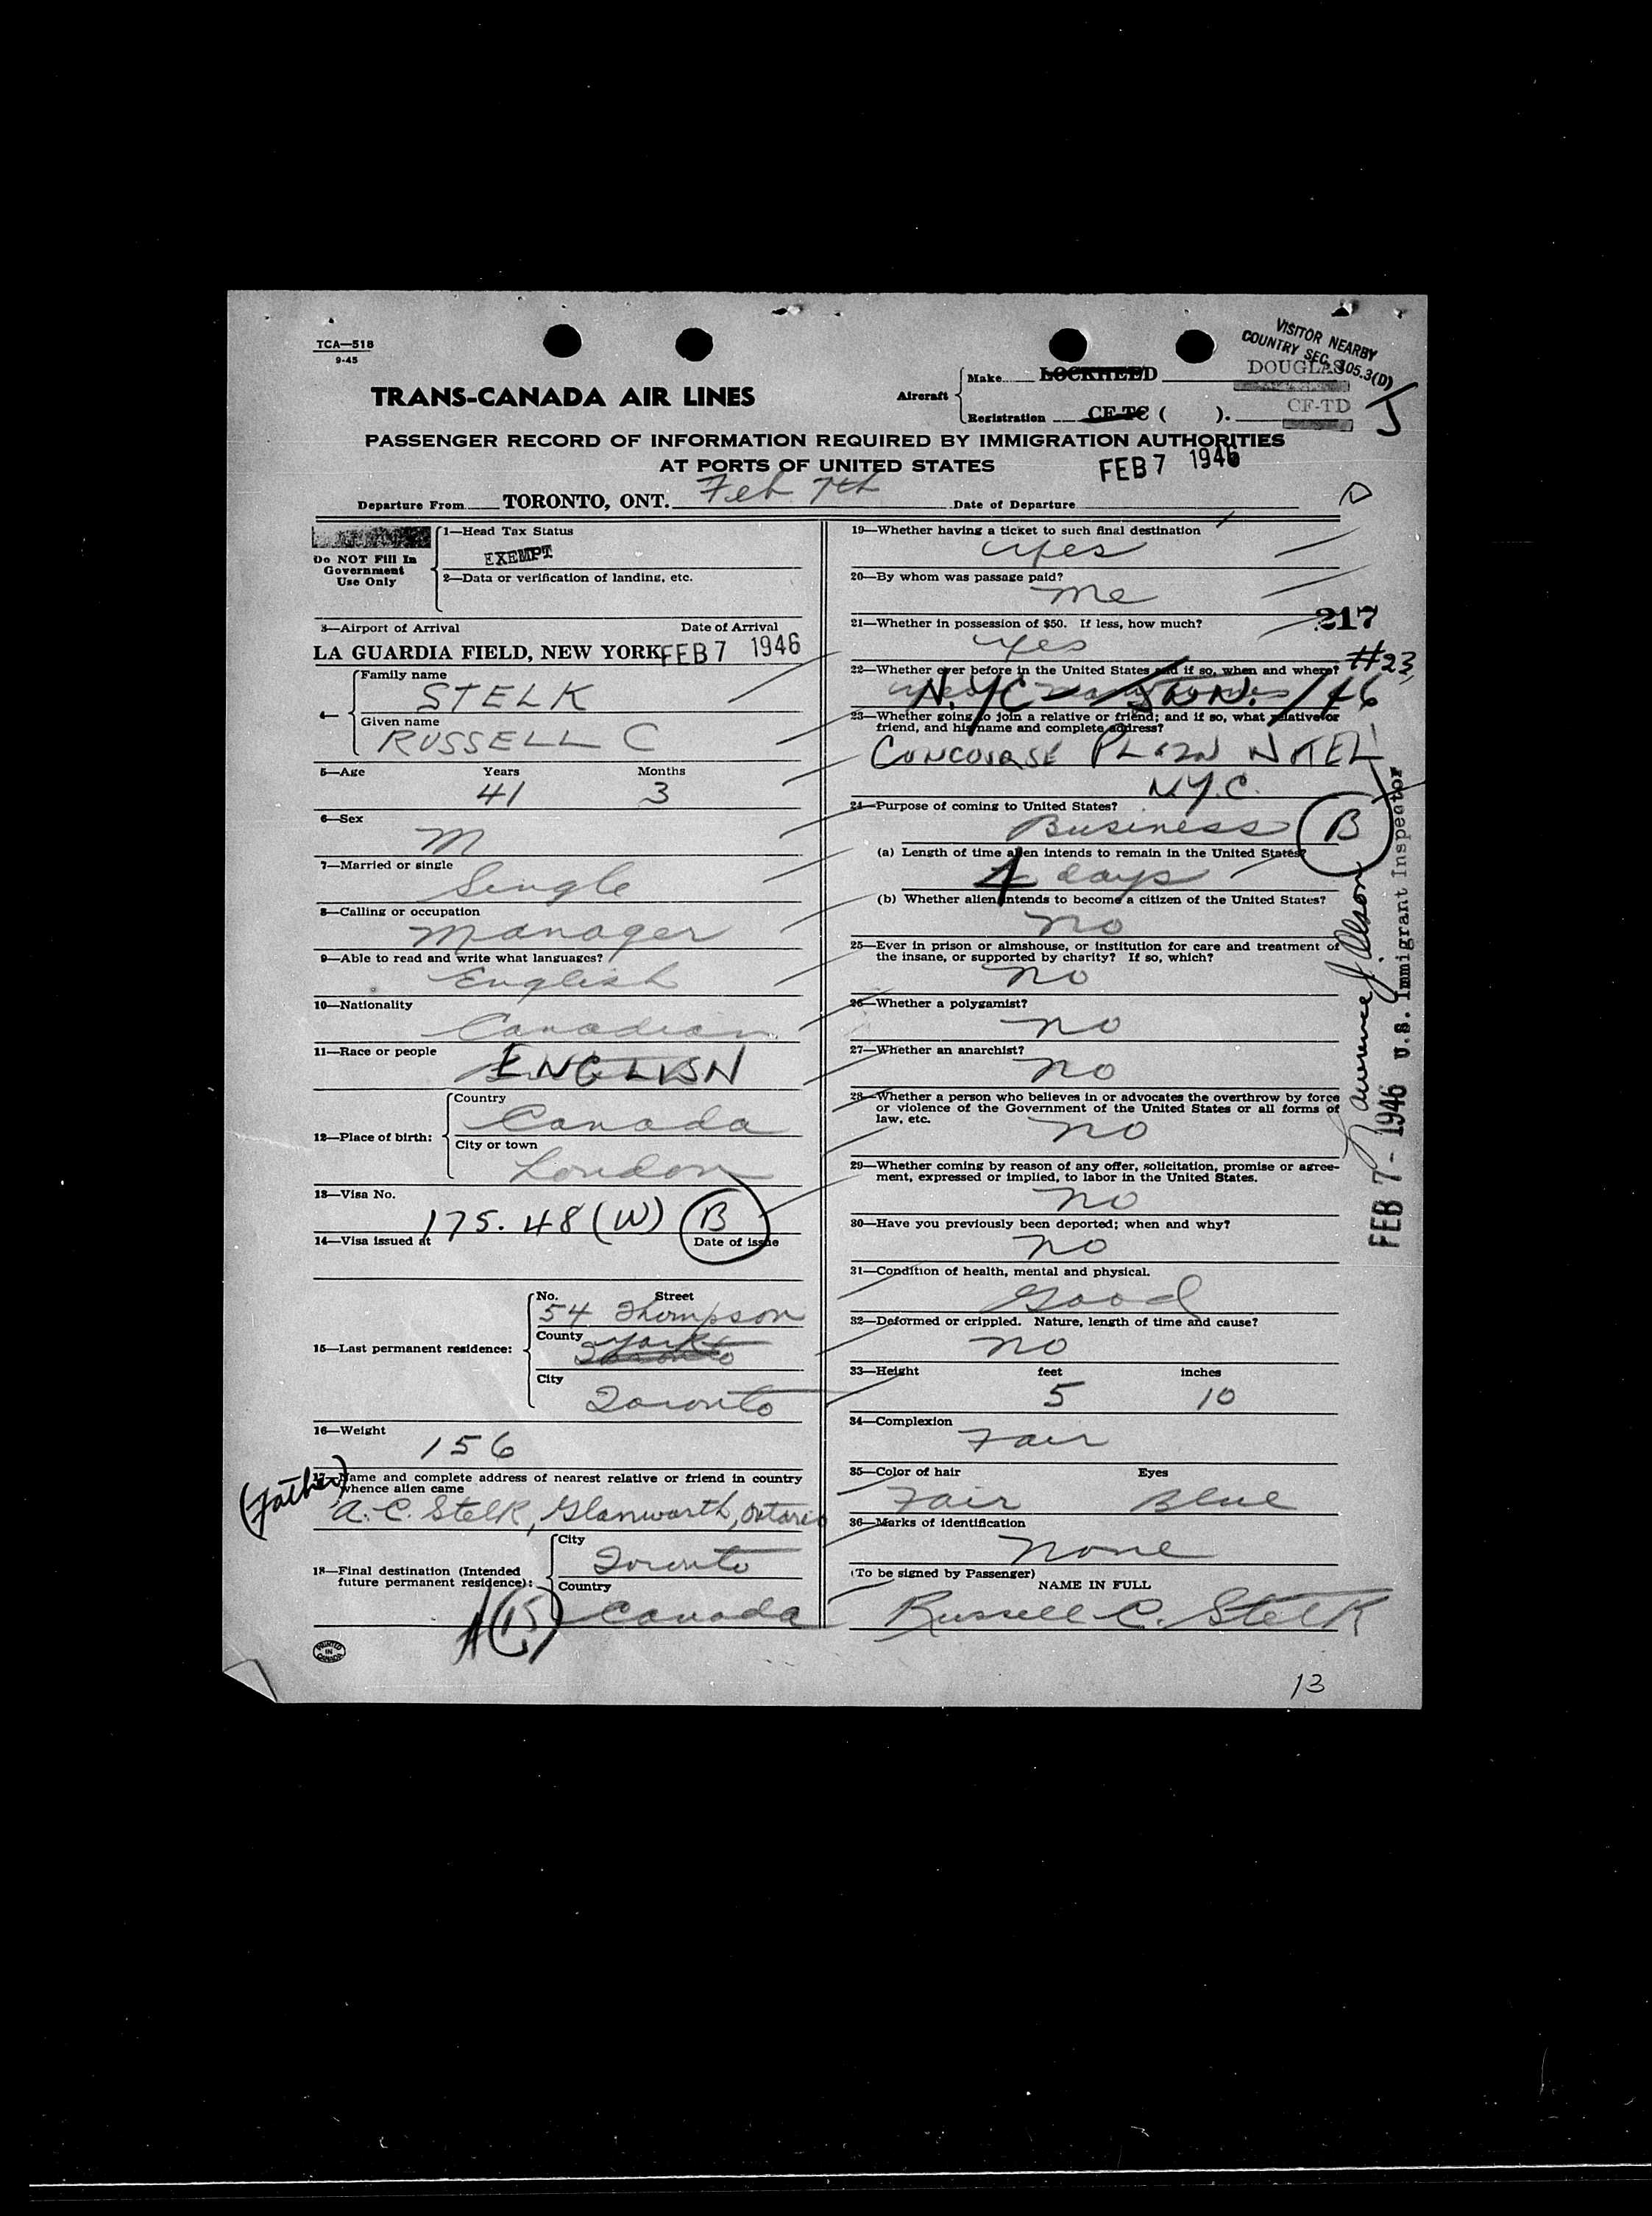 TCA—518
9-45
VISITOR NEARBY
COUNTRY SEC. 105.3(D)
TRANS-CANADA AIR LINES
Aircraft
Make LOCKHEED DOUGLAS
Registration CF-TC ( ). CF-TD
J
PASSENGER RECORD OF INFORMATION REQUIRED BY IMMIGRATION AUTHORITIES
AT PORTS OF UNITED STATES
FEB 7 1946
Departure From TORONTO, ONT. Feb 7th Date of Departure
Do NOT Fill In
Government
Use Only
1—Head Tax Status
EXEMPT
2—Data or verification of landing, etc.
3—Airport of Arrival Date of Arrival
LA GUARDIA FIELD, NEW YORK FEB 7 1946
4— Family name
STELK
Given name
RUSSELL C
5—Age Years Months
41 3
6—Sex
M
7—Married or single
Single
8—Calling or occupation
Manager
9—Able to read and write what languages?
English
10—Nationality
Canadian
11—Race or people
ENGLISH
12—Place of birth:
Country
Canada
City or town
London
13—Visa No.
175.48 (W) B
14—Visa issued at Date of issue
15—Last permanent residence:
No. Street
54 Thompson
County York
Toronto
City
Toronto
16—Weight
156
(Father)
17—Name and complete address of nearest relative or friend in country
whence alien came
A. C. Stelk, Glanworth, Ontario
18—Final destination (Intended
future permanent residence):
City
Toronto
Country
Canada
PRINTED
IN
CANADA
19—Whether having a ticket to such final destination
yes
20—By whom was passage paid?
me
217
21—Whether in possession of $50. If less, how much?
yes
22—Whether ever before in the United States and if so, when and where? #23
N.Y.C. JAN. /46
23—Whether going to join a relative or friend; and if so, what relative or
friend, and his name and complete address?
CONCOURSE PLAZA HTEL
N.Y.C.
24—Purpose of coming to United States?
Business B
(a) Length of time alien intends to remain in the United States?
4 days
(b) Whether alien intends to become a citizen of the United States?
no
25—Ever in prison or almshouse, or institution for care and treatment of
the insane, or supported by charity? If so, which?
no
26—Whether a polygamist?
no
27—Whether an anarchist?
no
28—Whether a person who believes in or advocates the overthrow by force
or violence of the Government of the United States or all forms of
law, etc.
no
29—Whether coming by reason of any offer, solicitation, promise or agree-
ment, expressed or implied, to labor in the United States.
no
30—Have you previously been deported; when and why?
no
31—Condition of health, mental and physical.
Good
32—Deformed or crippled. Nature, length of time and cause?
no
33—Height feet inches
5 10
34—Complexion
Fair
35—Color of hair Eyes
Fair Blue
36—Marks of identification
None
(To be signed by Passenger)
NAME IN FULL
Russell C. Stelk
FEB 7 - 1946 U.S. Immigrant Inspector
13